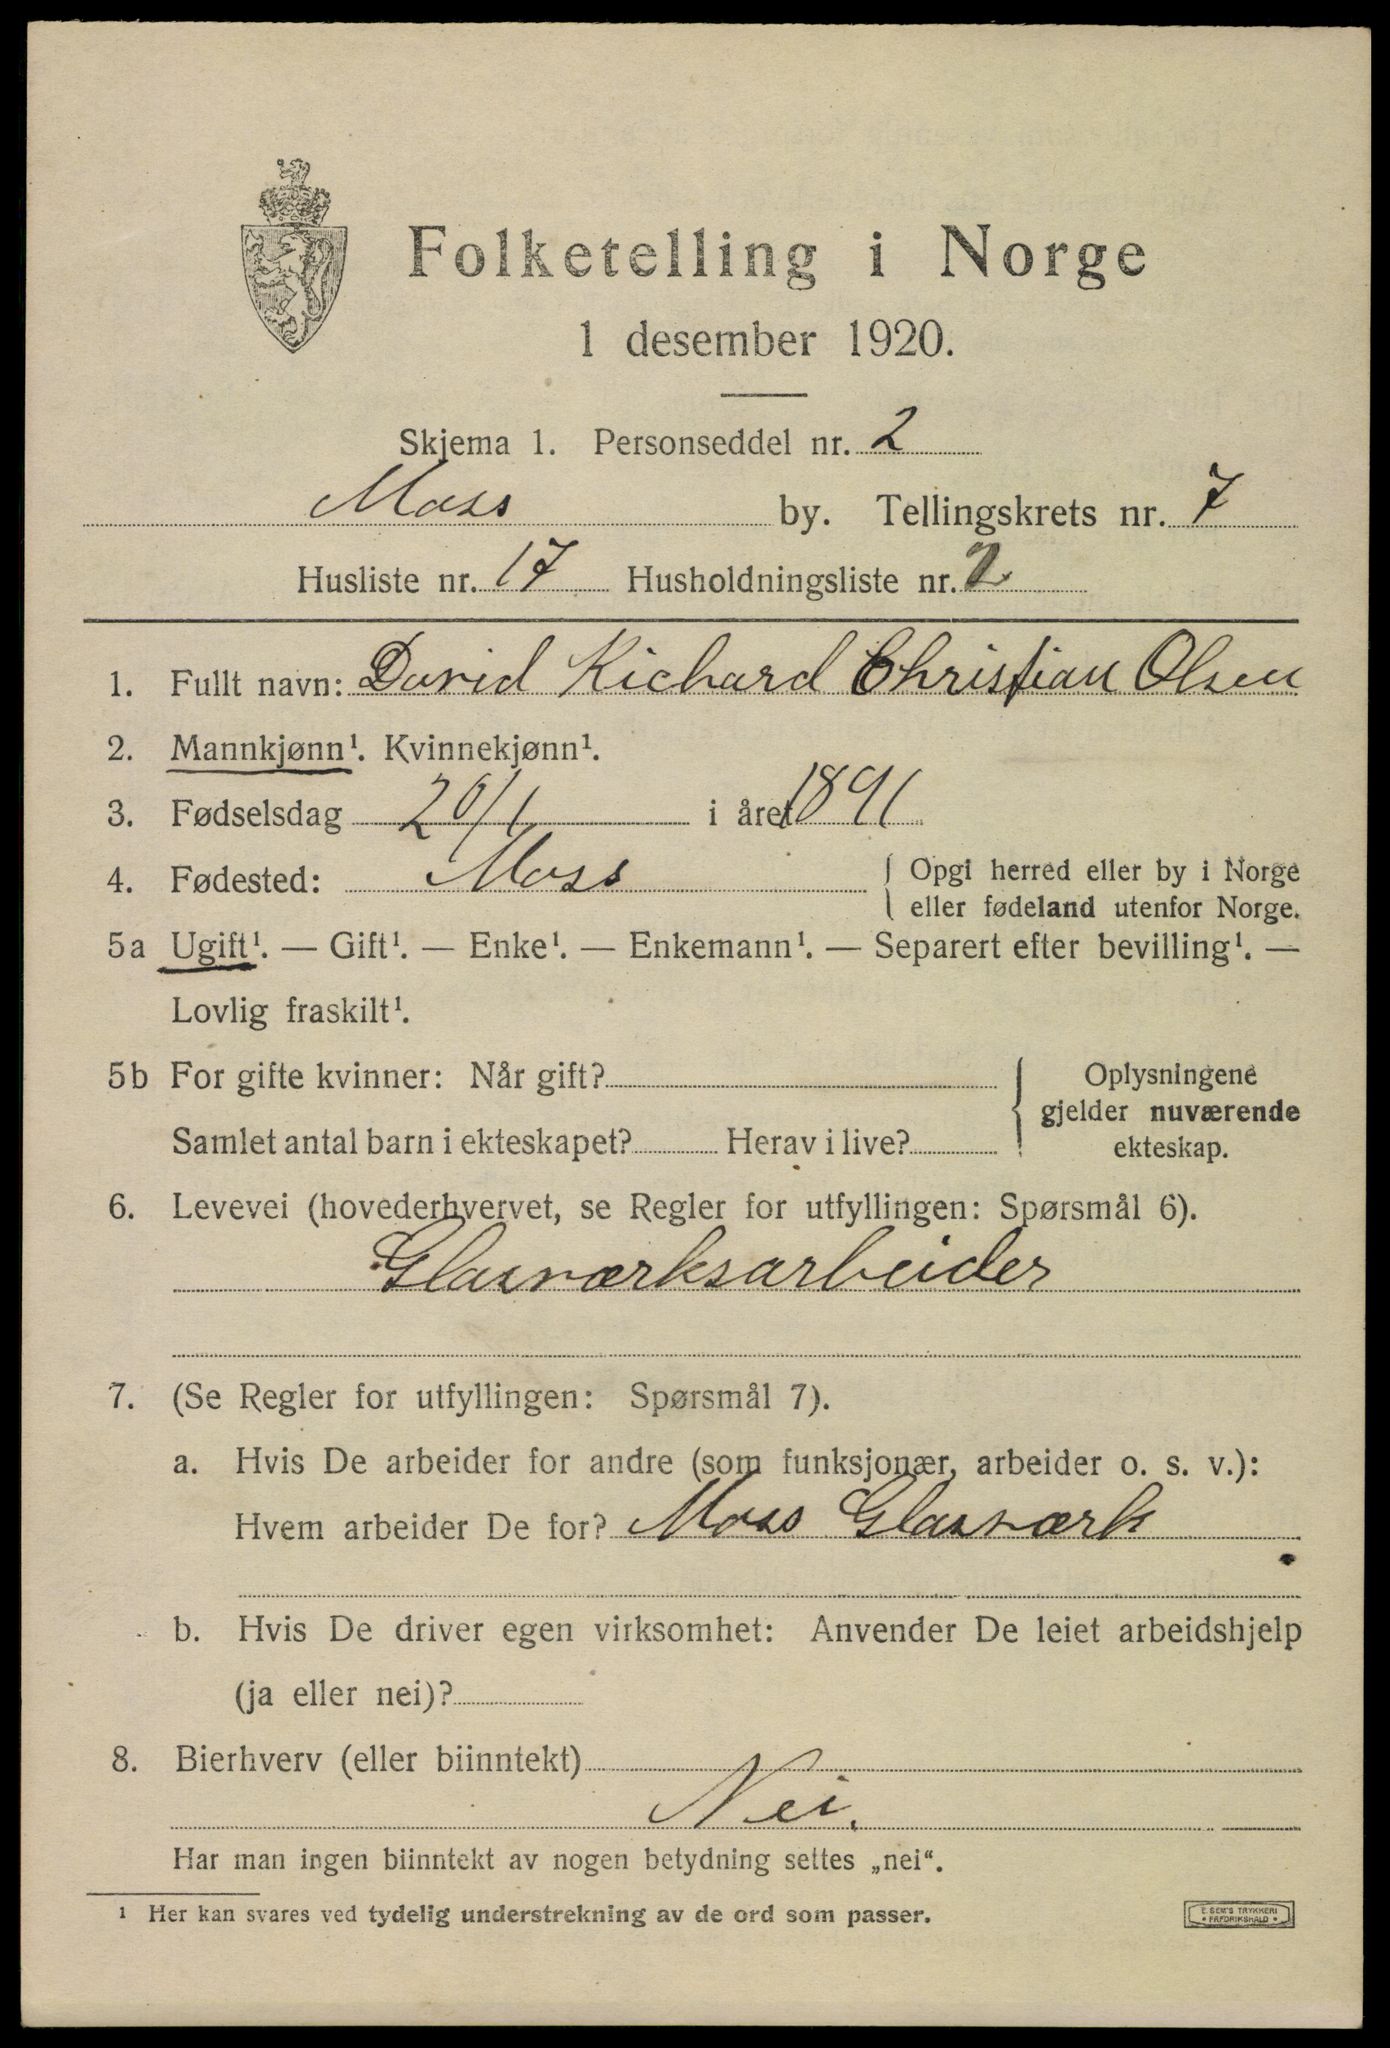 Folketelling i Norge
1 desember 1920.
Skjema 1. Personseddel nr. 2
Moss by. Tellingskrets nr. 7
Husliste nr. 17 Husholdningsliste nr. 2
1. Fullt navn: David Richard Christian Olsen
2. Mannkjønn¹. Kvinnekjønn¹.
3. Fødselsdag 20/1 i året 1891
4. Fødested: Moss { Opgi herred eller by i Norge
eller fødeland utenfor Norge.
5a Ugift¹. — Gift¹. — Enke¹. — Enkemann¹. — Separert efter bevilling¹. —
Lovlig fraskilt¹.
5b For gifte kvinner: Når gift? { Oplysningene
gjelder nuværende
Samlet antal barn i ekteskapet? Herav i live? ekteskap.
6. Levevei (hovederhvervet, se Regler for utfyllingen: Spørsmål 6).
Glasværksarbeider
7. (Se Regler for utfyllingen: Spørsmål 7).
a. Hvis De arbeider for andre (som funksjonær, arbeider o. s. v.):
Hvem arbeider De for? Moss Glasværk
b. Hvis De driver egen virksomhet: Anvender De leiet arbeidshjelp
(ja eller nei)?
8. Bierhverv (eller biinntekt)
Nei.
Har man ingen biinntekt av nogen betydning settes „nei“.
¹ Her kan svares ved tydelig understrekning av de ord som passer.
E. SEM'S TRYKKERI
• FREDRIKSHALD •